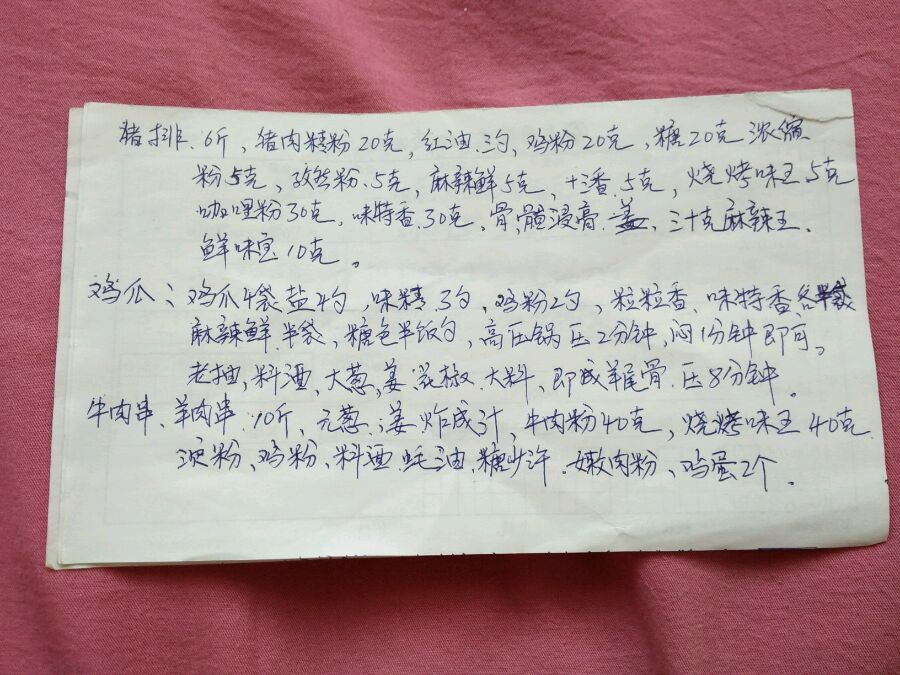 猪排.6斤,猪肉精粉20克,红油.3勺,鸡粉20克,糖20克浓缩
粉5克,孜然粉.5克,麻辣鲜5克,十三香.5克,烧烤味王.5克
咖哩粉30克.味特香.30克.骨髓浸膏.三十克麻辣王.
鲜味宝10克。
鸡瓜:鸡瓜4袋盐4勺.味精3勺.鸡粉2勺,粒粒香.味特香各半袋
麻辣鲜.半袋,糖色半饭勺,高压锅压2分钟,闷1分钟即可。
老抽,料酒、大葱,姜.花椒.大料、即成羊尾骨.压8分钟.
牛肉串、羊肉串.10斤、元葱.姜炸成汁,牛肉粉40克,烧烤味王40克
淀粉、鸡粉、料酒.蚝油、糖少许.嫩肉粉、鸡蛋2个.